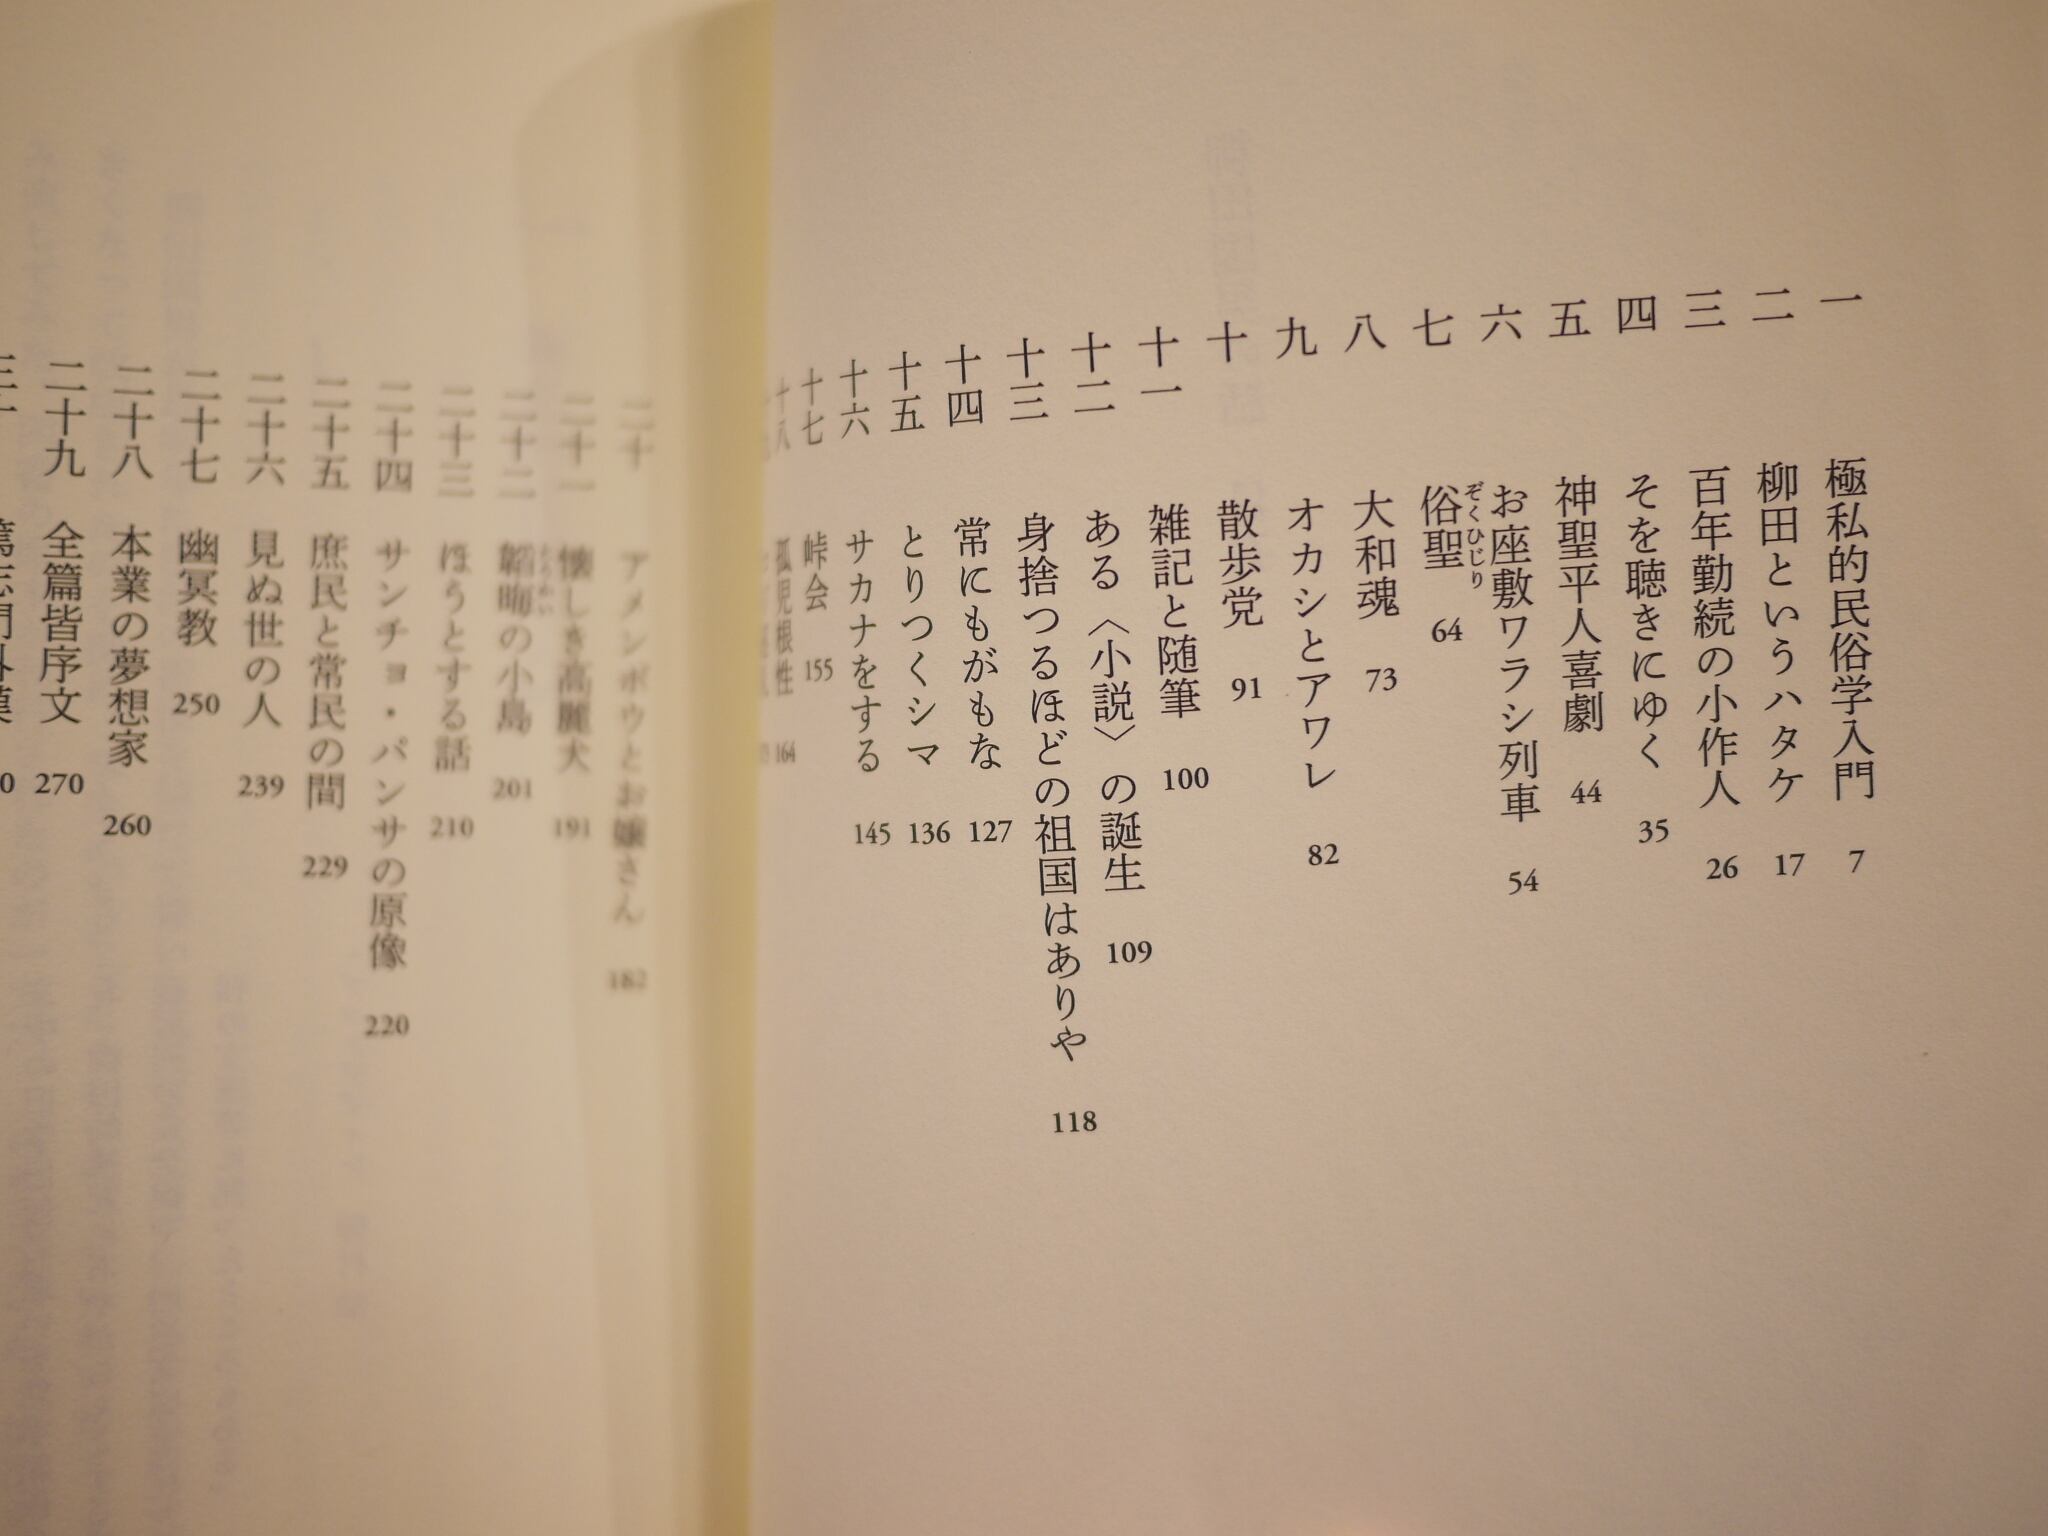 一 極私的民俗学入門 7
二 柳田というハタケ 17
三 百年勤続の小作人 26
四 そを聴きにゆく 35
五 神聖平人喜劇 44
六 お座敷ワラシ列車 54
七 俗聖 64
ぞくひじり
八 大和魂 73
九 オカシとアワレ 82
十 散歩党 91
十一 雑記と随筆 100
十二 ある〈小説〉の誕生 109
十三 身捨つるほどの祖国はありや 118
十四 常にもがもな 127
十五 とりつくシマ 136
十六 サカナをする 145
十七 峠会 155
十八 孤児根性 164
二十 アメンボウとお嬢さん 182
二十一 懐しき高麗犬 191
二十二 韜晦の小島 201
とうかい
二十三 ほうとする話 210
二十四 サンチョ・パンサの原像 220
二十五 庶民と常民の間 229
二十六 見ぬ世の人 239
二十七 幽冥教 250
二十八 本業の夢想家 260
二十九 全篇皆序文 270